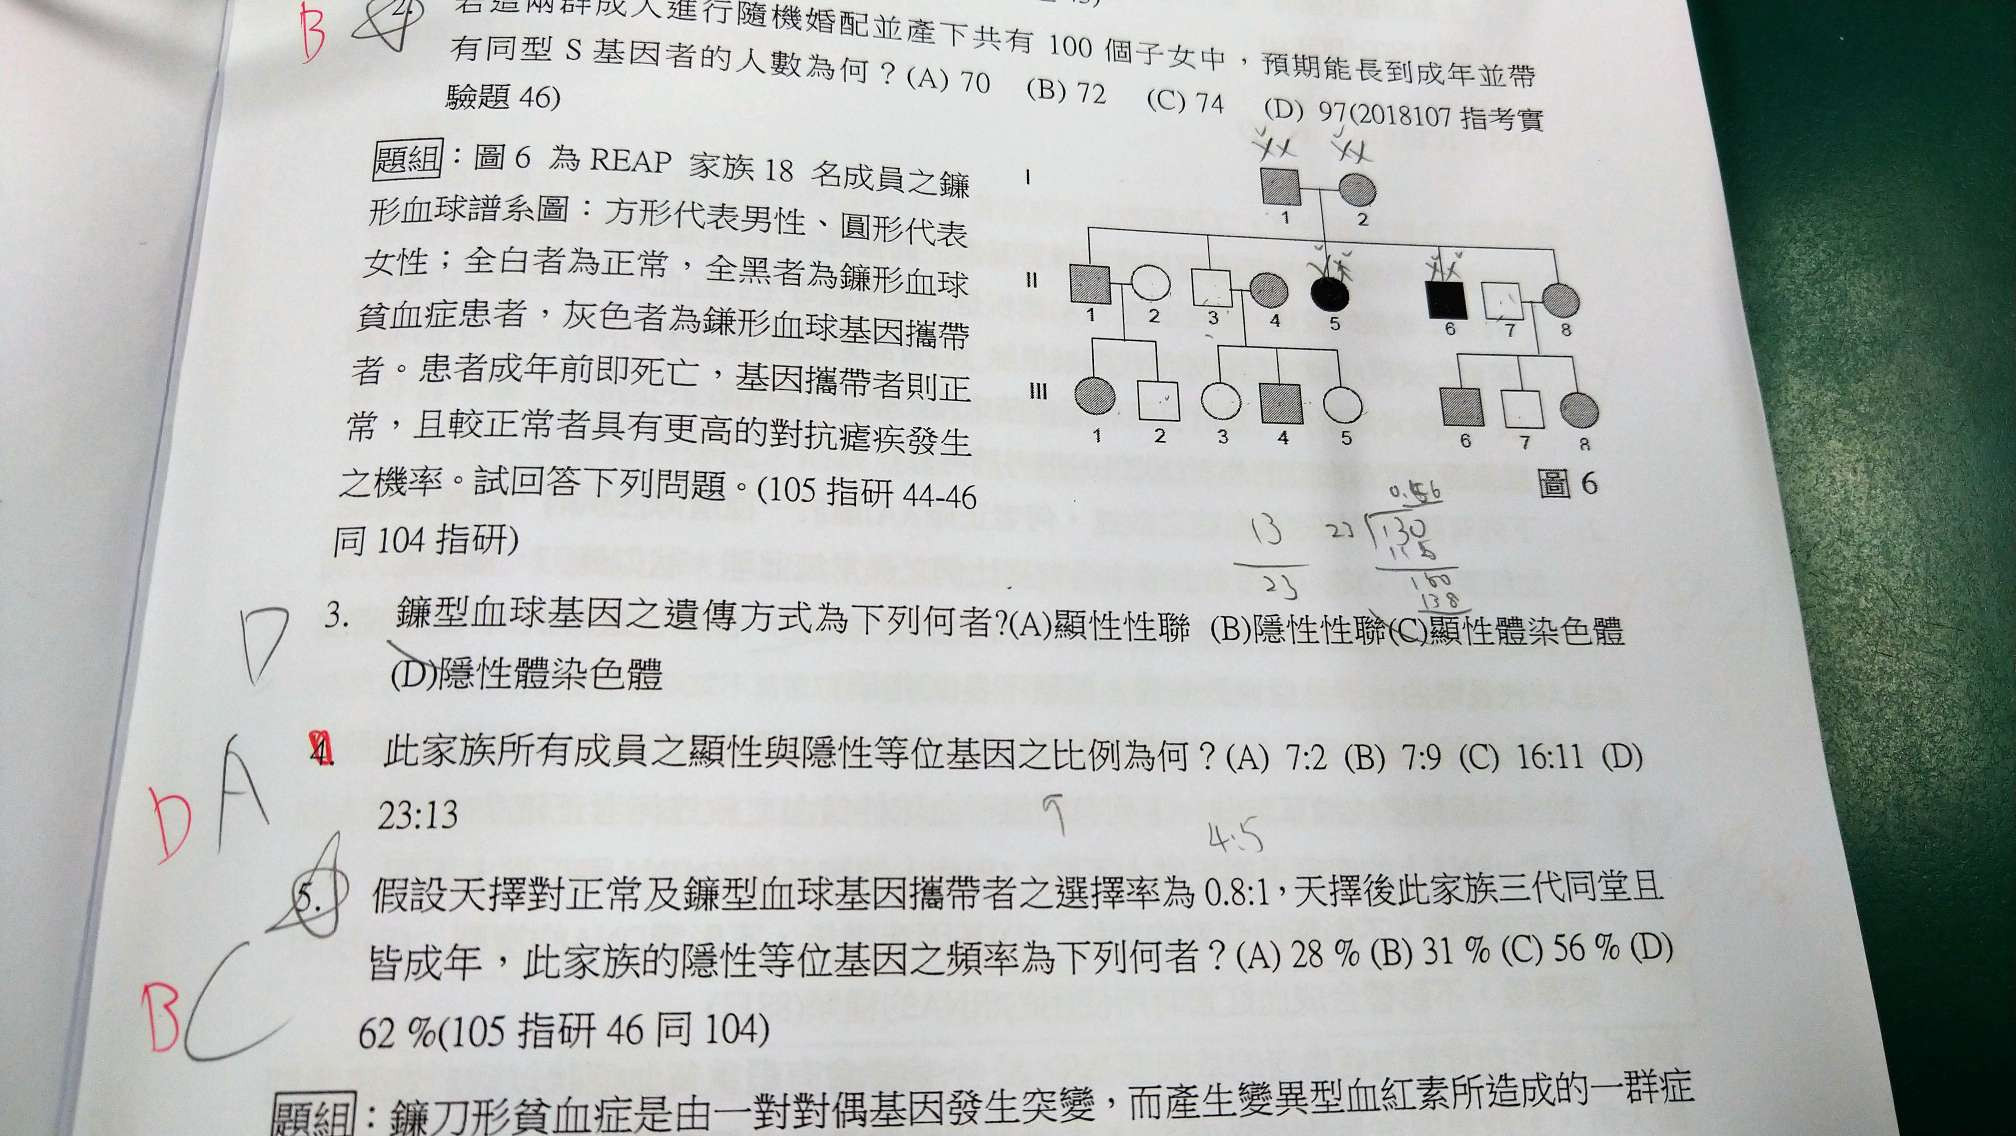 B 2. 若這兩群成人進行隨機婚配並產下共有 100 個子女中，預期能長到成年並帶
有同型 S 基因者的人數為何？(A) 70 (B) 72 (C) 74 (D) 97(2018107 指考實
驗題 46)
題組：圖 6 為 REAP 家族 18 名成員之鐮
形血球譜系圖：方形代表男性、圓形代表
女性；全白者為正常，全黑者為鐮形血球
貧血症患者，灰色者為鐮形血球基因攜帶
者。患者成年前即死亡，基因攜帶者則正
常，且較正常者具有更高的對抗瘧疾發生
之機率。試回答下列問題。(105 指研 44-46
同 104 指研)
I
1 2
II
1 2 3 4 5 6 7 8
III
1 2 3 4 5 6 7 8
圖 6
13
23
23 130
115
138
D 3. 鐮型血球基因之遺傳方式為下列何者?(A)顯性性聯 (B)隱性性聯(C)顯性體染色體
(D)隱性體染色體
D A 4. 此家族所有成員之顯性與隱性等位基因之比例為何？(A) 7:2 (B) 7:9 (C) 16:11 (D)
23:13
4:5
5. 假設天擇對正常及鐮型血球基因攜帶者之選擇率為 0.8:1，天擇後此家族三代同堂且
皆成年，此家族的隱性等位基因之頻率為下列何者？(A) 28 % (B) 31 % (C) 56 % (D)
B C 62 %(105 指研 46 同 104)
題組：鐮刀形貧血症是由一對對偶基因發生突變，而產生變異型血紅素所造成的一群症